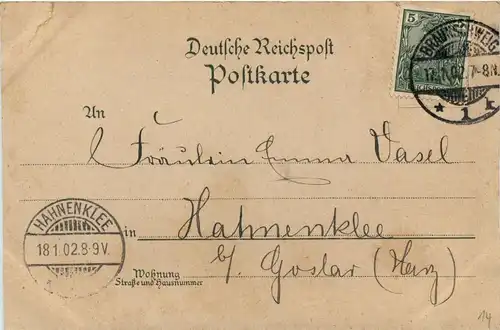 Deutsche Reichspost
Postkarte
5
BRAUNSCHWEIG
17.1.02.7-8N.
* 1 k
An
Fräulein Emma Vasel
HAHNENKLEE
18.1.02.8-9V.
in Hahnenklee
b/ Goslar (Harz)
Wohnung
Straße und Hausnummer
14